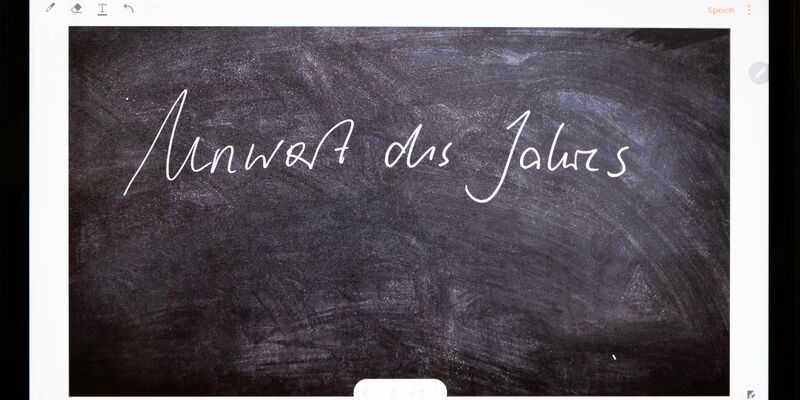 Speich.
Unwort des Jahres
2 / 2